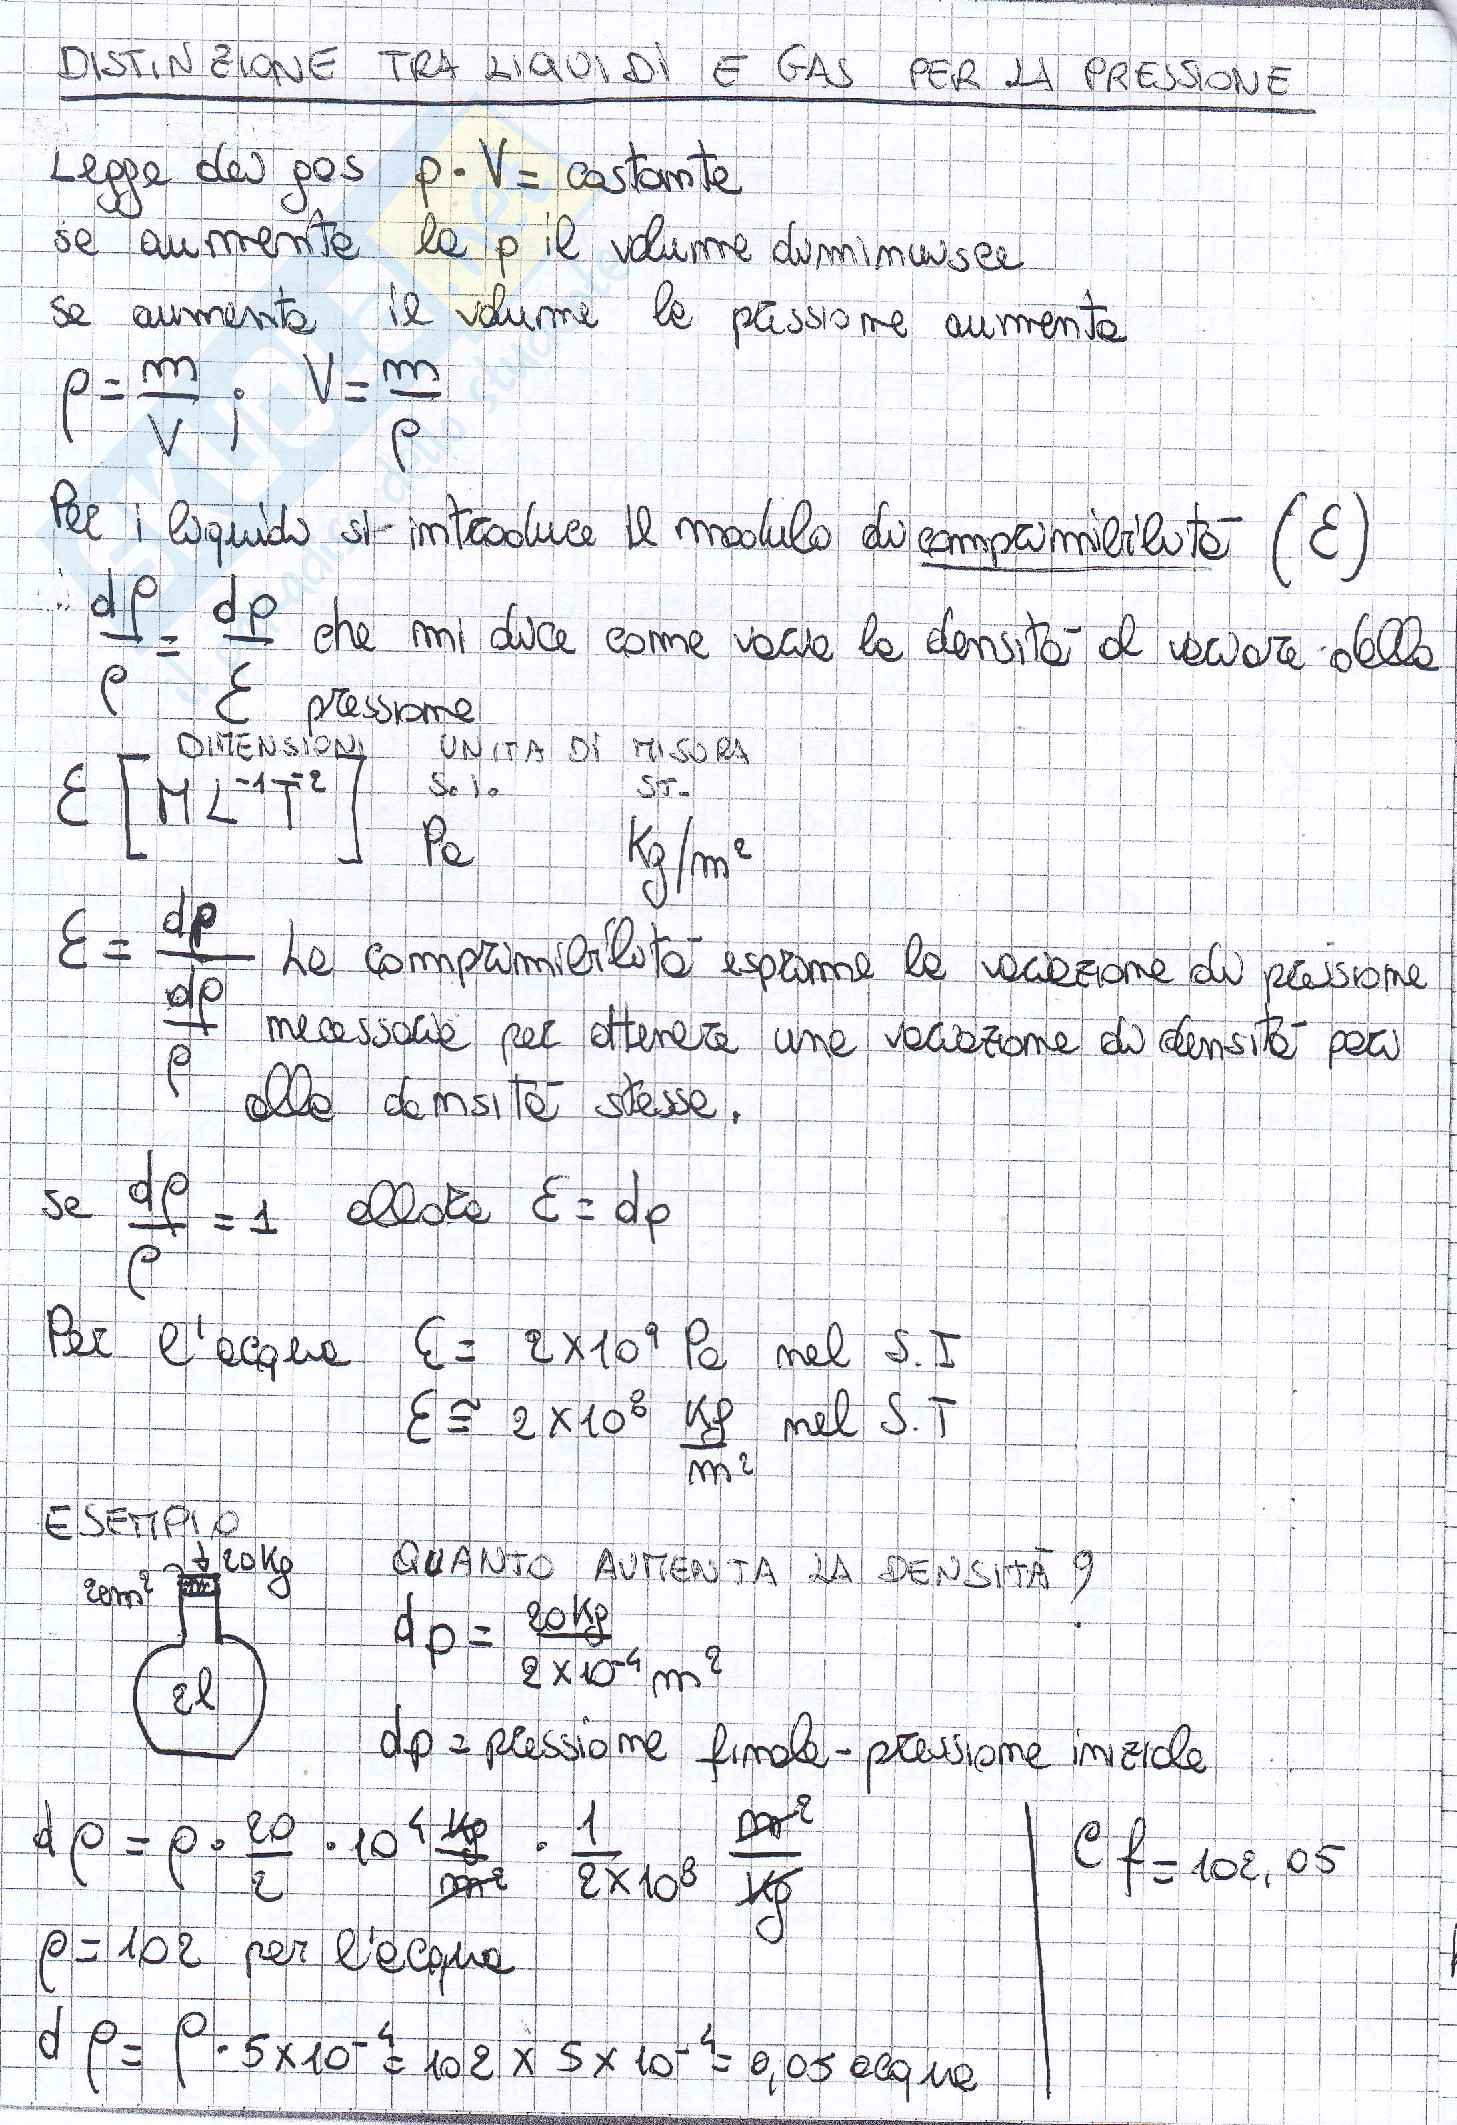 DISTINZIONE TRA LIQUIDI E GAS PER LA PRESSIONE
Legge dei gas p · V = costante
se aumenta la p il volume diminuisce
se aumenta il volume la pressione aumenta
ρ = m/V ; V = m/ρ
Per i liquidi si introduce il modulo di comprimibilità (ε)
dρ/ρ = dp/ε che mi dice come varia la densità al variare della
pressione
DIMENSIONI UNITA DI MISURA
S.i. ST.
ε [M L⁻¹ T⁻²] Pa Kg/m²
ε = dp/(dρ/ρ) La comprimibilità esprime la variazione di pressione
necessaria per ottenere una variazione di densità pari
alla densità stessa.
se dρ/ρ = 1 allora ε = dp
Per l'acqua ε = 2×10⁹ Pa nel S.I
ε ≅ 2×10⁸ Kg/m² nel S.T
ESEMPIO
20Kg
QUANTO AUMENTA LA DENSITÀ?
dp = 20Kg / 2×10⁻⁴ m²
2l
dp = pressione finale - pressione iniziale
dρ = ρ · 20/2 · 10⁴ Kg/m² · 1/2×10⁸ m²/Kg
ρf = 102,05
ρ = 102 per l'acqua
dρ = ρ · 5×10⁻⁴ = 102 × 5×10⁻⁴ = 0,05 acqua
skuola.net